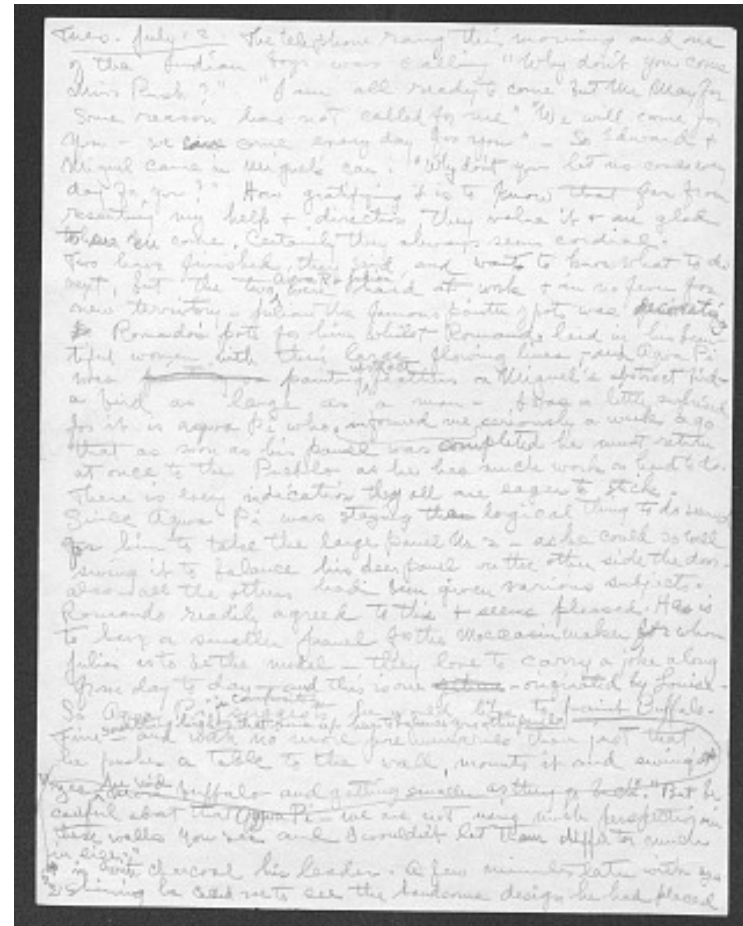 Tues. July 12 The telephone rang this morning and one
of the Indian boys was calling "Why don't you come
Miss Rush?" "I am all ready to come but Mr. May for
some reason has not called for me" "We will come for
you - we come every day for you" - So Edward +
Miguel came in Miguel's car. "Why don't you let us come every
day for you?" How gratifying it is to know that far from
resenting my help + direction they value it + are glad
to see me come. Certainly they always seem cordial.
Two have finished their and want to know what to do
next, but the two were hard at work + in no fever for
new territory. Julian the famous painter of pots was decorating
Romando's pots for him while Romando laid in his beau-
tiful women with their large flowing lines - and Awa Pi
was painting feathers on Miguel's abstract bird -
a bird as large as a man - I was a little surprised
for it is Agwa Pi who informed me seriously a week ago
that as soon as his panel was completed he must return
at once to the Pueblo as he has much work to do.
There is every indication they all are eager to stick.
Since Agwa Pi was staying the logical thing to do seemed
for him to take the large panel No 2 - as he could so well
swing it to balance his deer panel on the other side the door -
also all the others had been given various subjects.
Romando readily agreed to this + seems pleased. He is
to have a smaller panel for the Moccasin maker for whom
Julian is to be the model - they love to carry a joke along
from day to day - and this is one - originated by Louise.
So Agwa Pi he would like to paint Buffalo.
Fine - and with no more preliminaries than just that
he pushes a table to the wall, mounts it and swings
"Yes, he said buffalo and getting smaller as they go back". "But be
careful about that Agwa Pi - we are not using much perspective on
these walls you see and I wouldn't let them differ too much
in size."
in with charcoal his leader. A few minutes later with eyes
shining he called me to see the handsome design he had placed